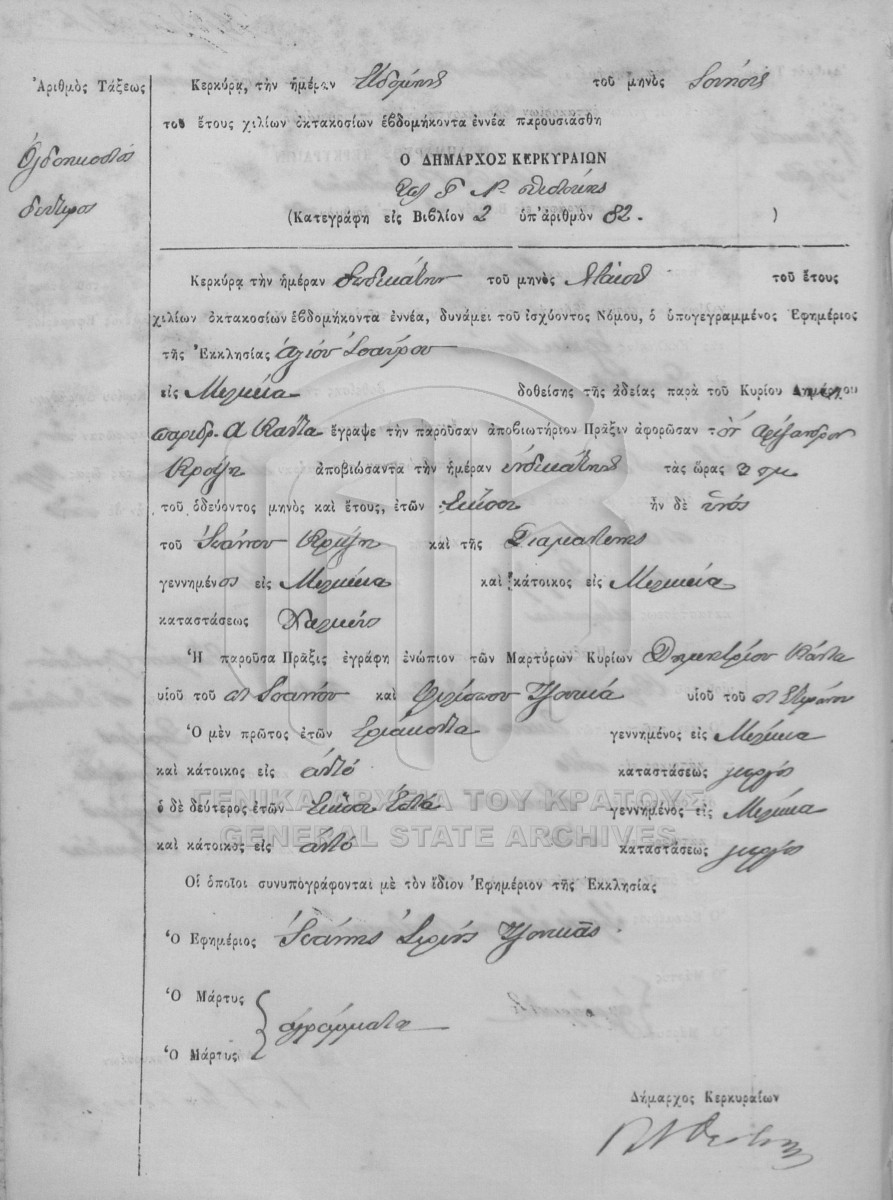 Ἀριθμὸς Τάξεως
Ὀγδοηκοστός
δεύτερος
Κερκύρᾳ, τὴν ἡμέραν Ἑβδόμην τοῦ μηνὸς Ἰουνίου
τοῦ ἔτους χιλίων ὀκτακοσίων ἑβδομήκοντα ἐννέα παρουσιάσθη
Ο ΔΗΜΑΡΧΟΣ ΚΕΡΚΥΡΑΙΩΝ
(Κατεγράφη εἰς Βιβλίον 2 ὑπ' ἀριθμὸν 82. )
Κερκύρᾳ τὴν ἡμέραν δωδεκάτην τοῦ μηνὸς Μαΐου τοῦ ἔτους
χιλίων ὀκτακοσίων ἑβδομήκοντα ἐννέα, δυνάμει τοῦ ἰσχύοντος Νόμου, ὁ ὑπογεγραμμένος Ἐφημέριος
τῆς Ἐκκλησίας
εἰς Μελικεία δοθείσης τῆς ἀδείας παρὰ τοῦ Κυρίου Δημάρχου
παρέδρ. Α ἔγραψε τὴν παροῦσαν ἀποβιωτήριον Πρᾶξιν ἀφορῶσαν τὸν
ἀποβιώσαντα τὴν ἡμέραν ἑνδεκάτην τὰς ὥρας 2 πμ
τοῦ ὁδεύοντος μηνὸς καὶ ἔτους, ἐτῶν εἴκοσι ἦν δὲ υἱὸς
τοῦ Ἰωάννου καὶ τῆς Σταματέλης
γεννημένος εἰς Μελικεία καὶ κάτοικος εἰς Μελικεία
καταστάσεως
Ἡ παροῦσα Πρᾶξις ἐγράφη ἐνώπιον τῶν Μαρτύρων Κυρίων Δημητρίου Κάντα
υἱοῦ τοῦ Ἰωάννου καὶ Τζουκά υἱοῦ τοῦ
Ὁ μὲν πρῶτος ἐτῶν τριάκοντα γεννημένος εἰς Μελικεία
καὶ κάτοικος εἰς αὐτό καταστάσεως γεωργός
ὁ δὲ δεύτερος ἐτῶν εἴκοσι ἑπτά γεννημένος εἰς Μελικεία
καὶ κάτοικος εἰς αὐτό καταστάσεως γεωργός
Οἱ ὁποῖοι συνυπογράφονται μὲ τὸν ἴδιον Ἐφημέριον τῆς Ἐκκλησίας
Ὁ Ἐφημέριος Ἰωάννης Ἱερεύς Τζουκᾶς
Ὁ Μάρτυς
ἀγράμματοι
Ὁ Μάρτυς
Δήμαρχος Κερκυραίων
ΓΕΝΙΚΑ ΑΡΧΕΙΑ ΤΟΥ ΚΡΑΤΟΥΣ
GENERAL STATE ARCHIVES